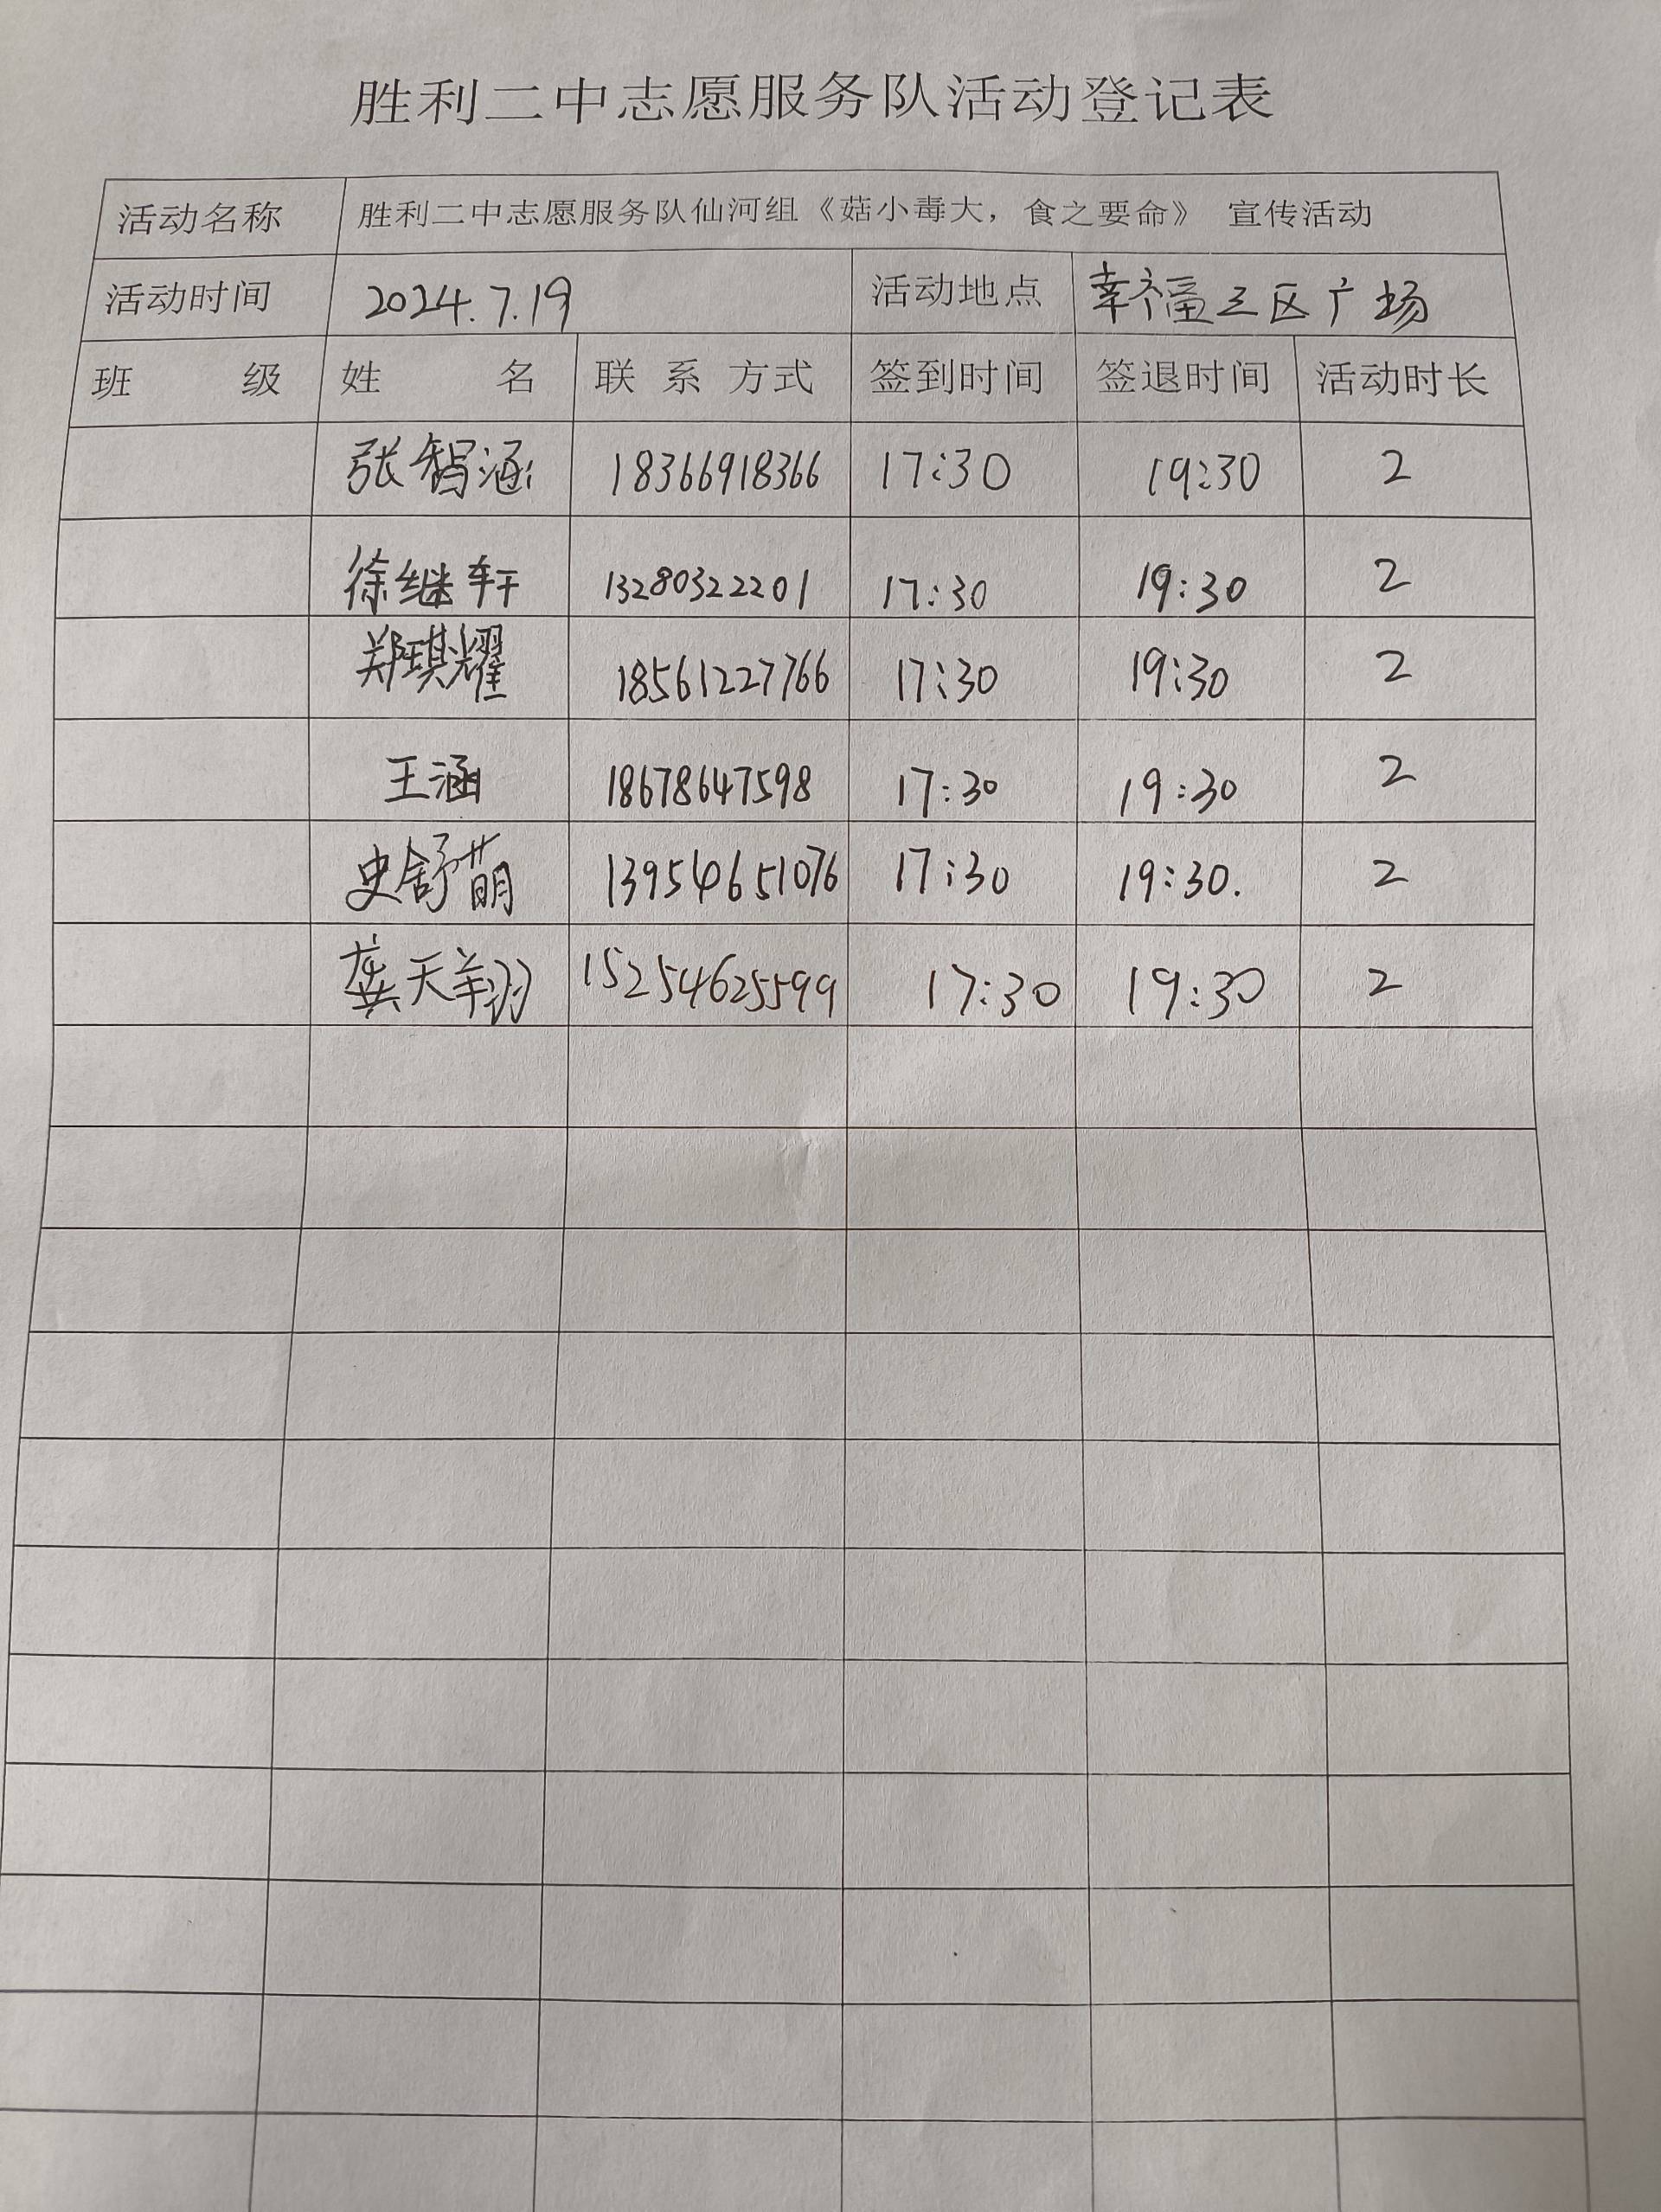 胜利二中志愿服务队活动登记表
活动名称 胜利二中志愿服务队仙河组《菇小毒大，食之要命》 宣传活动
活动时间 2024.7.19 活动地点 幸福三区广场
班 级 姓 名 联 系 方式 签到时间 签退时间 活动时长
张智涵 18366918366 17:30 19:30 2
徐继轩 13280322201 17:30 19:30 2
郑琪耀 18561227766 17:30 19:30 2
王涵 18678647598 17:30 19:30 2
史舒萌 13954651076 17:30 19:30. 2
龚天翔 15254625599 17:30 19:30 2